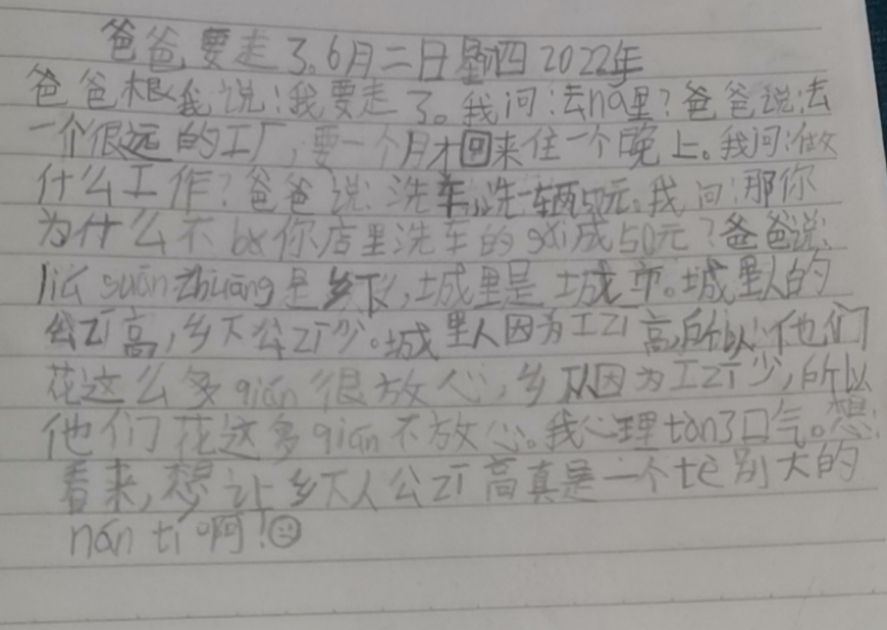 爸爸要走了。6月二日星期四2022年
爸爸根我说:我要走了。我问:去nǎ里?爸爸说:去
一个很远的工厂,要一个月才回来住一个晚上。我问:做
什么工作?爸爸说:洗车,洗一辆50元。我问:那你
为什么不bǎ你店里洗车的gǎi成50元?爸爸说:
liǔ suān zhuāng是乡下,城里是城市。城里人的
公zī高,乡下公zī少。城里人因为工zī高,所以他们
花这么多qián很放心,乡下人因为工zī少,所以
他们花这多qián不放心。我心理tàn了口气。想:
看来,想让乡下人公zī高真是一个tè别大的
nán tí啊!☹